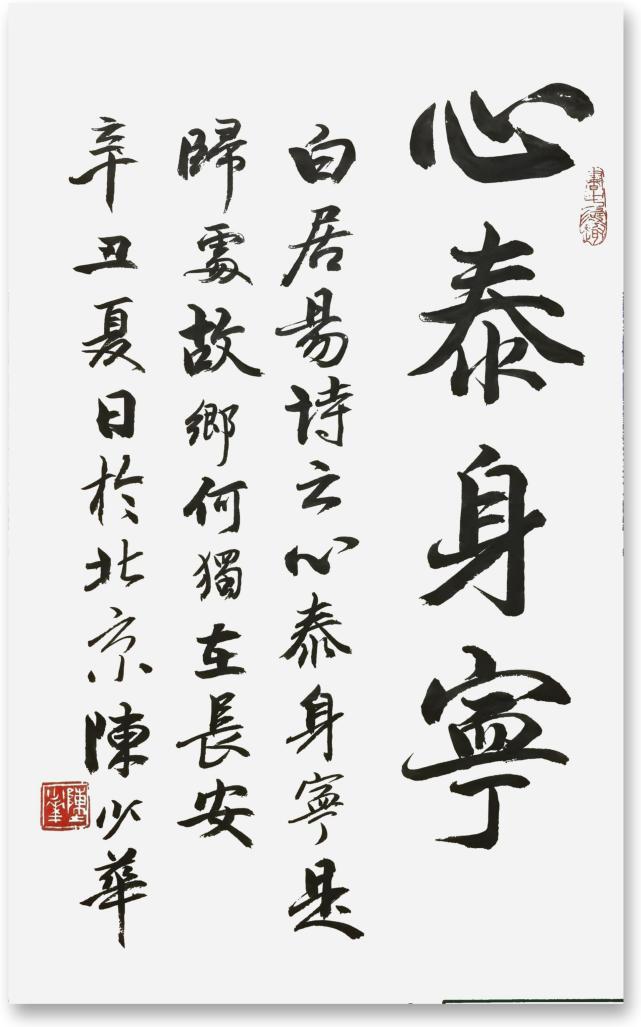 心泰身寧
白居易诗云心泰身寧是
歸處故鄉何獨在長安
辛丑夏日於北京陳少華